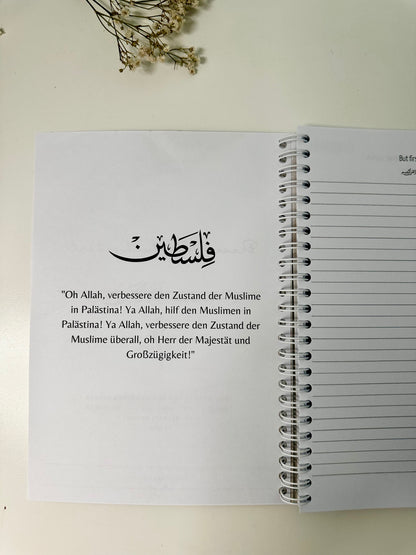 فلسطين
"Oh Allah, verbessere den Zustand der Muslime
in Palästina! Ya Allah, hilf den Muslimen in
Palästina! Ya Allah, verbessere den Zustand der
Muslime überall, oh Herr der Majestät und
Großzügigkeit!"
But firs